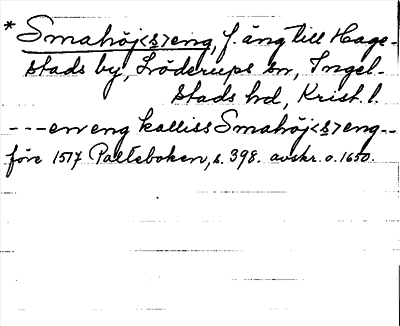 * Smahöj<s>eng, f. äng till Hage-
stads by, Löderups sn, Ingel-
stads hd, Krist. l.
--- en eng kalliss Smahöj<s>eng--
före 1517 Palteboken, s. 398. avskr. o. 1650.